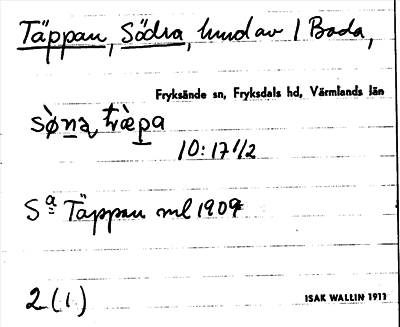 Täppan, Södra, hmd av 1 Bada,
Fryksände sn, Fryksdals hd, Värmlands län
10:17 1/2
Sa Täppan ml 1909
2 (1)
ISAK WALLIN 1911